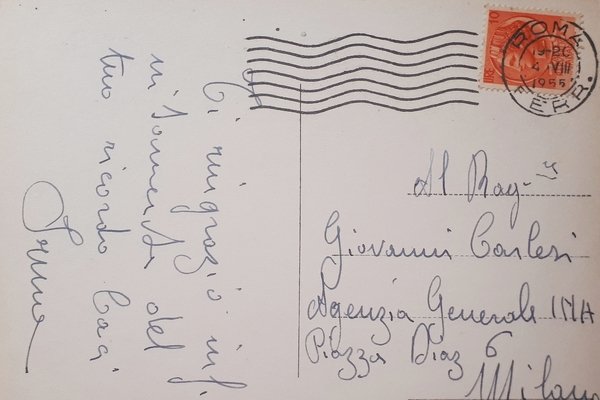 Ti ringrazio infi
nitamente del
tuo ricordo Cari
Irma
Al Rag.
Giovanni Carlesi
Agenzia Generale INA
Piazza Diaz 6
Milano
10
ROMA
19-20
4 VIII
1955
FERR.